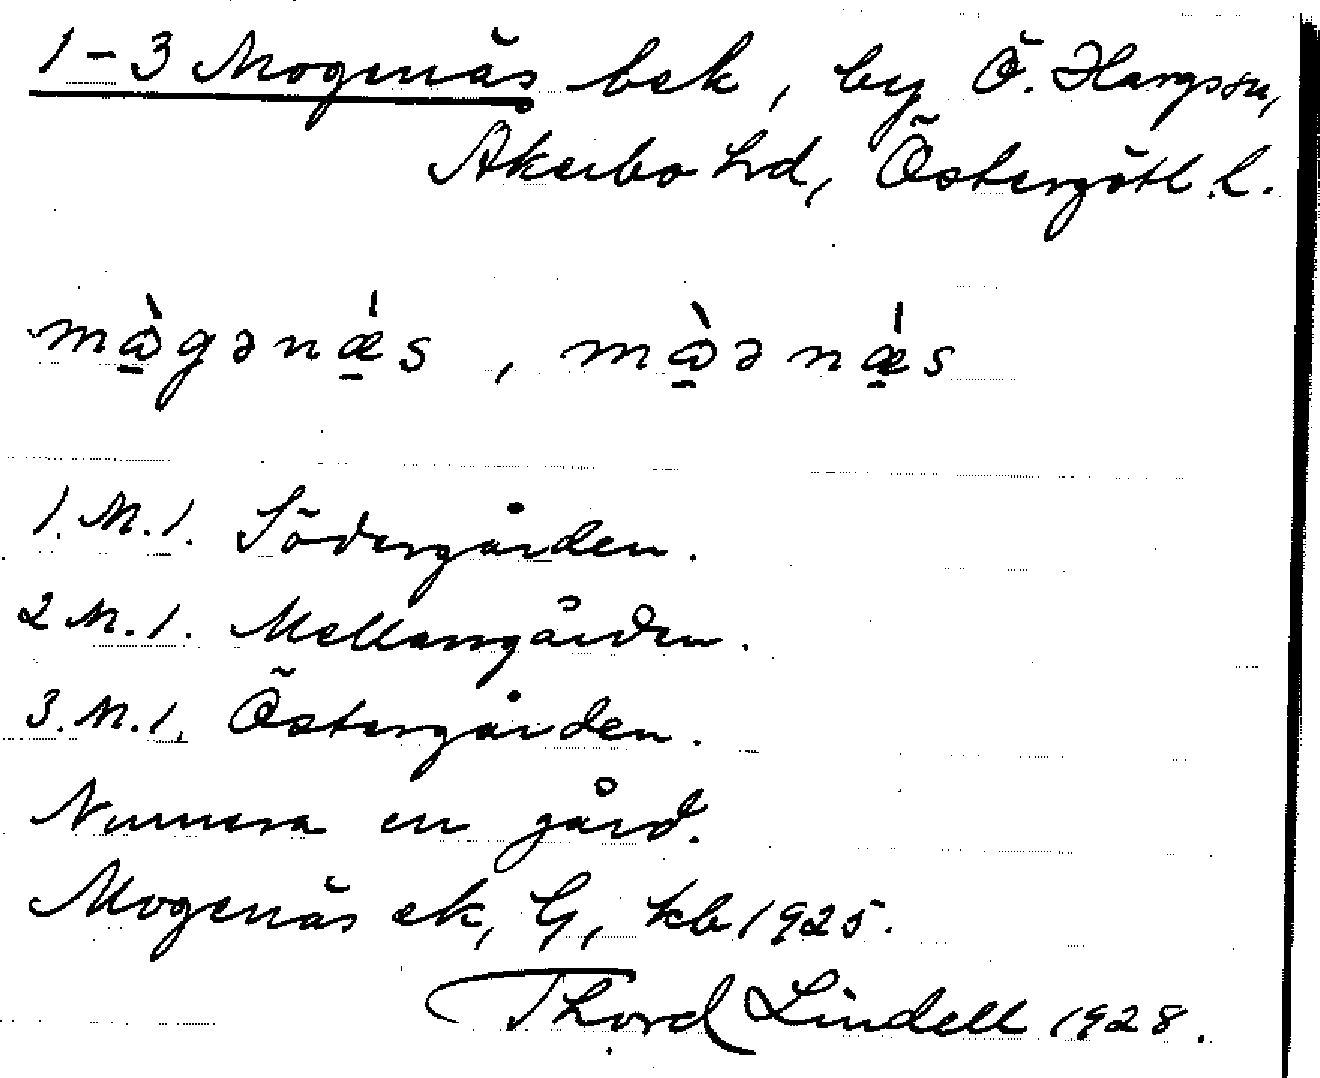 1-3 Mogenäs bsk, by Ö. Hargssn,
Åkerbo hd, Östergötl. l.
mὰ̱gənǽ̱s, mὰ̱ənǽ̱s
1. M. 1. Södergården.
2 M. 1. Mellangården.
3. M. 1. Östergården.
Numera en gård.
Mogenäs ek, G, kb 1925.
Thord Lindell 1928.